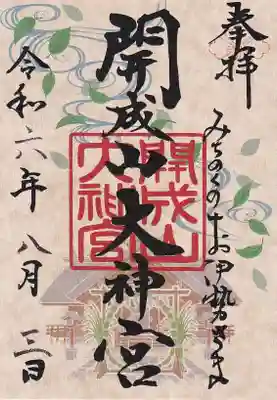 奉拝
みちのくのお伊勢さま
開成山大神宮
開成山大神宮
令和六年八月三日